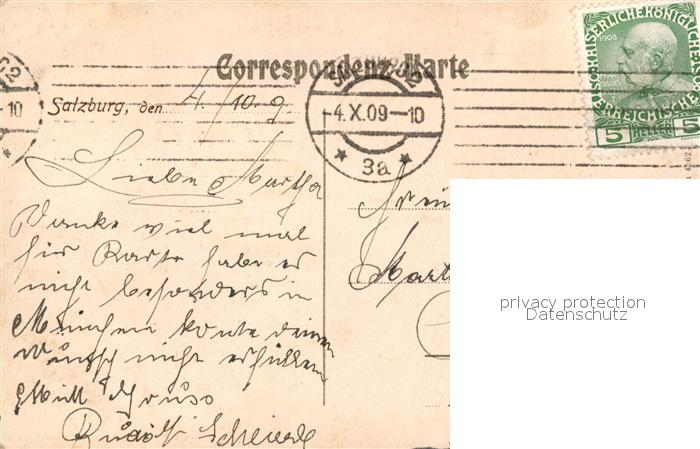 Correspondenz-Karte
Salzburg, den 4./10. 9
4.X.09-10
3a
10
KAISERLICHE KÖNIGLICHE
1908
5 HELLER 5
Liebe Martha
Danke viel mal
für Karte habe es
nicht besonders in
München konte deinen
Wunsch nicht erfüllen
Gruss
Rudolf
Mart
privacy protection
Datenschutz